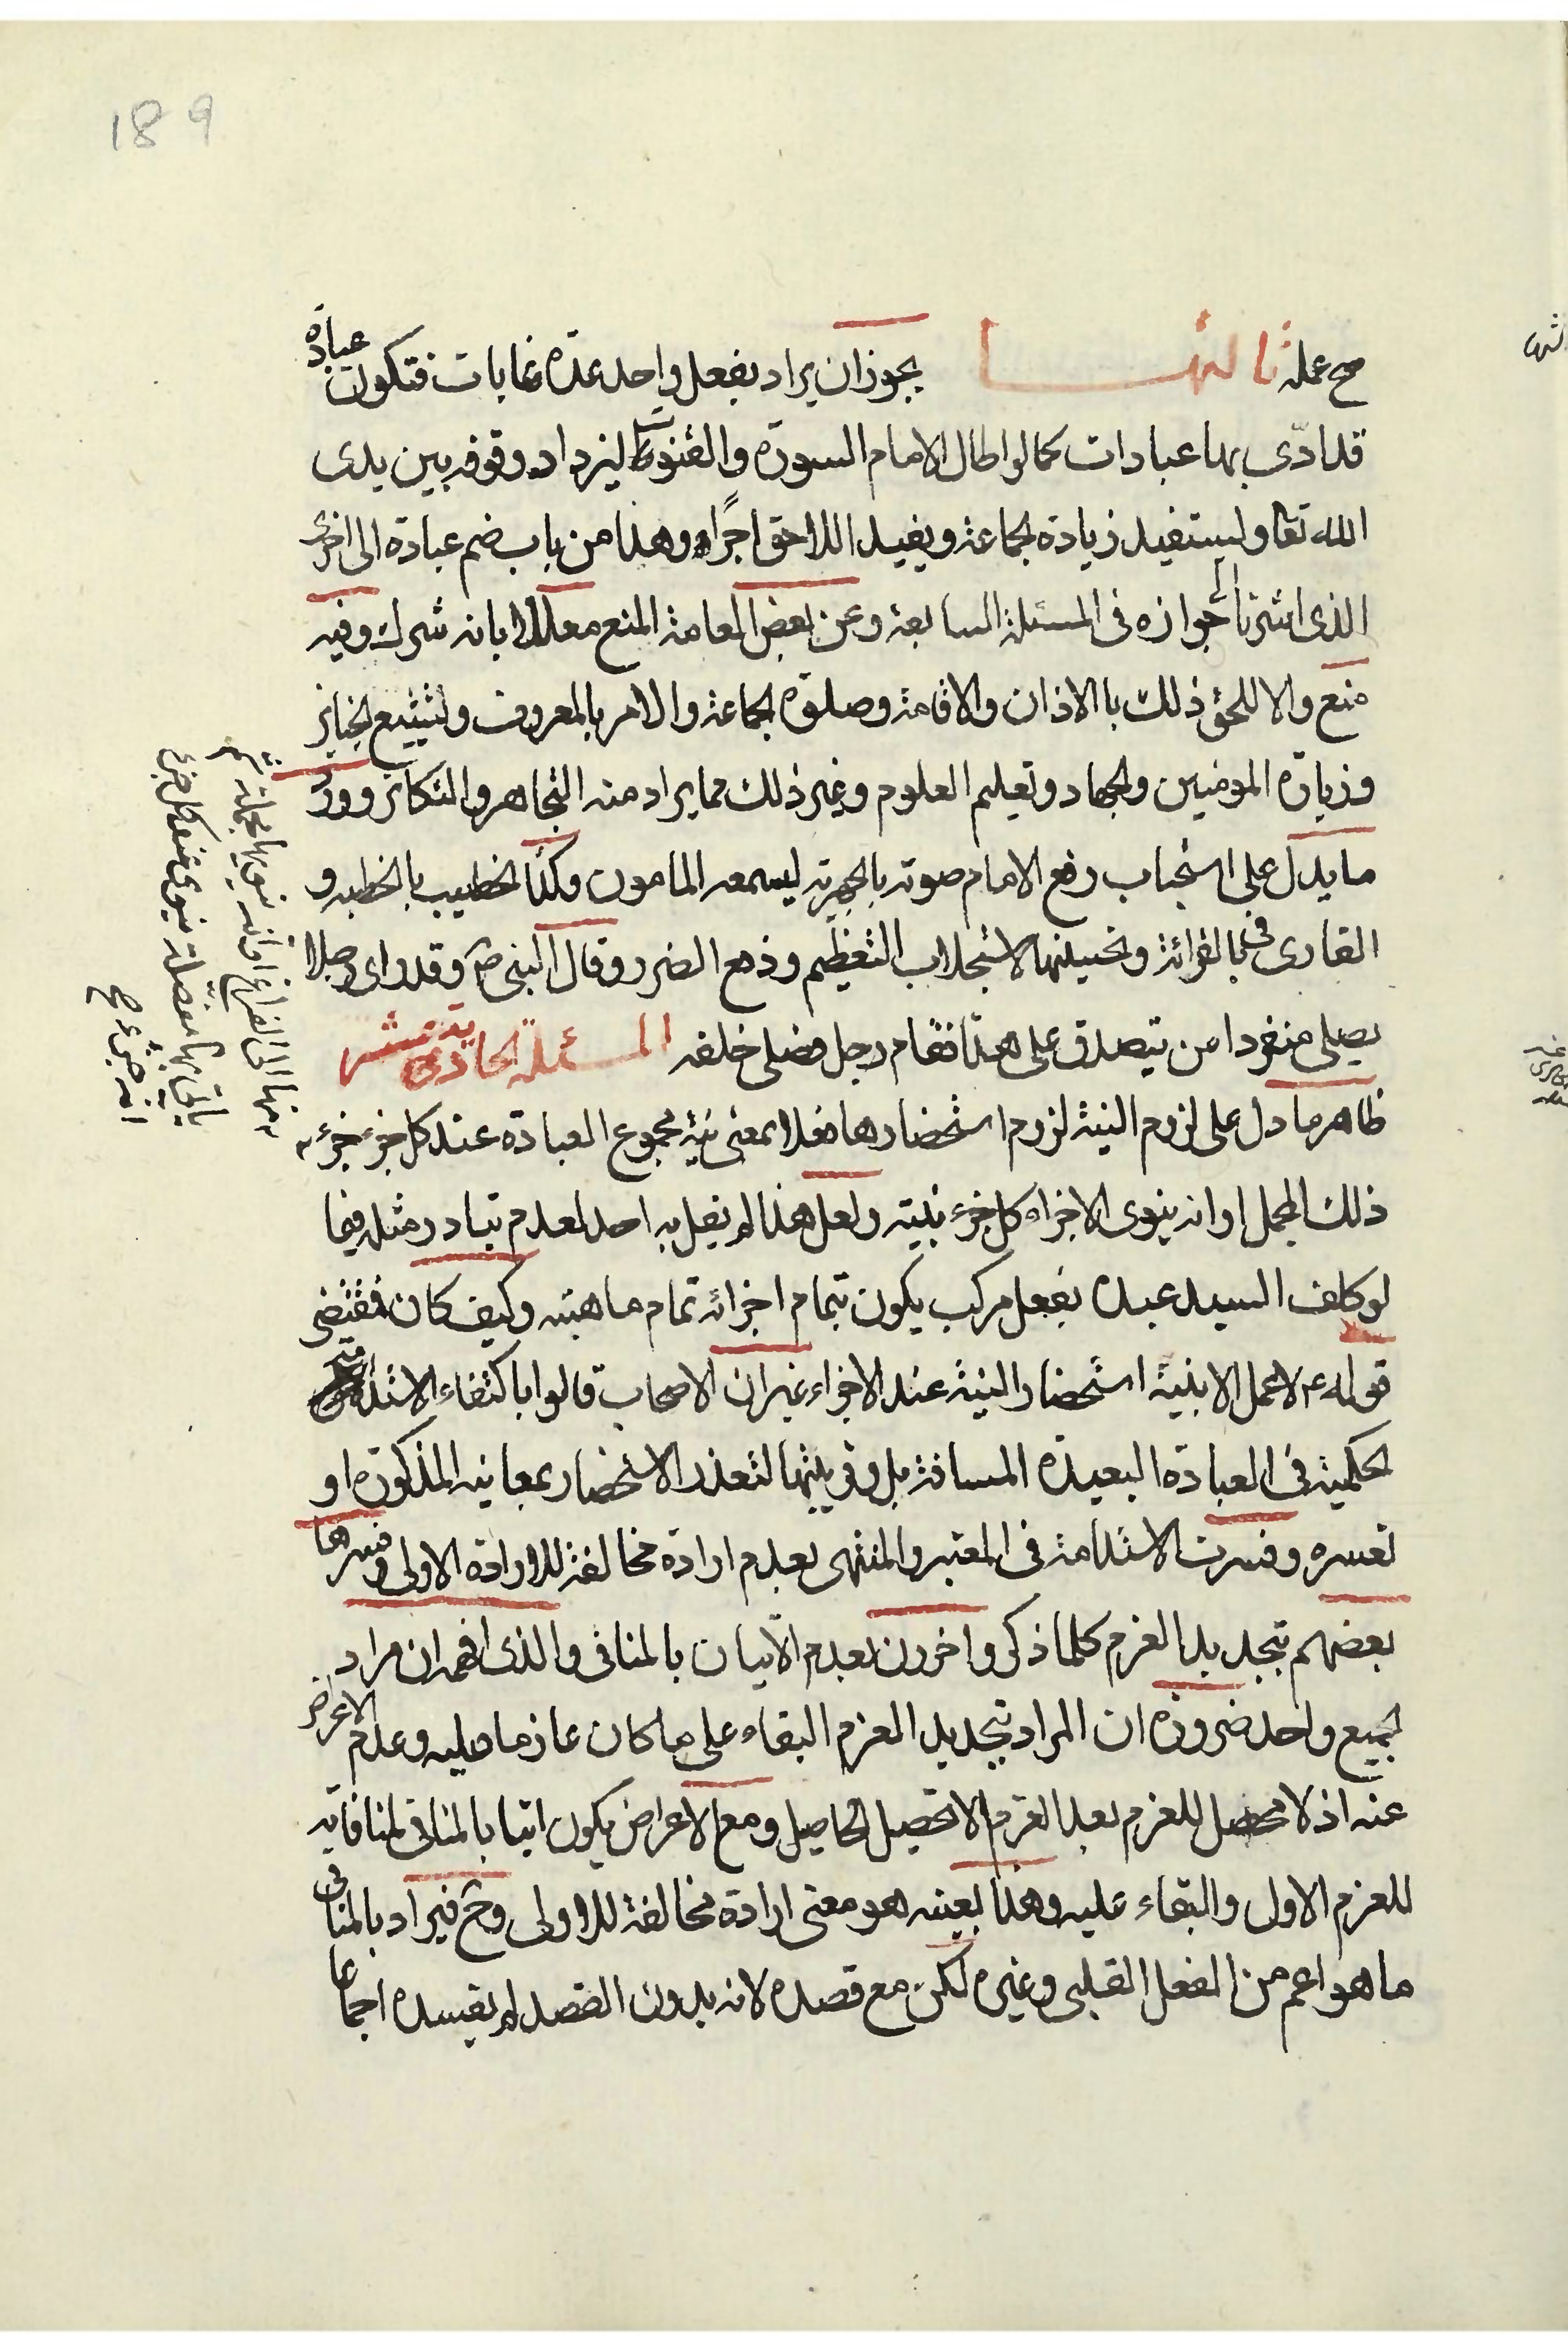 189
صح عمله ثالثها يجوز ان يراد بفعل واحد عدة غايات فتكون عبادة
قد ادّى بها عبادات كما لو اطال الامام السورة والقنوت ليزداد وقوفه بين يدى
الله تعا وليستفيد زيادة الجماعة ويفيد اللاحق اجرًا وهذا من باب ضم عبادة الى اخرى
الذى اشرنا الى جوازه فى المسئلة السابعة وعن بعض العامة المنع معللا بانه شرك وفيه
منع والا للحق ذلك بالاذان والاقامة وصلوة الجماعة والامر بالمعروف وتشييع الجنايز
وزيارة المومنين والجهاد وتعليم العلوم وغير ذلك مما يراد منه التجاهر والتكاثر وورد
ما يدل على استحباب رفع الامام صوته بالجهرية ليسمعه المامون وكذا الخطيب بالخطبه و
القارى فى بالقرائة وتحسينها لاستجلاب التعظيم ودفع الضرر وقال النبى ص وقد راى رجلا
يصلى منفردا من يتصدق على هذا فقام رجل فصلى خلفه المسئلة الحادية عشر
ظاهر ما دل على لزوم النية لزوم استحضارها فعلا بمعنى نية مجموع العبادة عند كل جزء جزء
ذلك المجمل او انه ينوى الاجزاء كل جزء بنيته ولعل هذا لم يقل به احد لعدم تبادر مثله فيما
لو كلف السيد عبده بفعل مركب يكون بتمام اجزائه تمام ماهيته وكيف كان فمقتضى
قوله ع لا عمل الا بنية استحضار النية عند الاجزاء غير ان الاصحاب قالوا باكتفاء الاستدامة
الحكمية فى العبادة البعيدة المسافة بل وقريبتها لتعذر الاستحضار بمعانيه المذكورة او
تعسره وفسرت الاستدامة فى المعتبر والمنتهى بعدم ارادة مخالفة للارادة الاولى وفسرها
بعضهم بتجديد العزم كلما ذكر واخرون بعدم الاتيان بالمنافى والذى افهم ان مراد
الجميع واحد ضرورة ان المراد بتجديد العزم البقاء على ما كان عازما عليه وعدم الاعراض
عنه اذ لا محصل للعزم بعد العزم الا تحصيل الحاصل ومع الاعراض يكون اتيا بالمنافى لمنافاته
للعزم الاول والبقاء عليه وهذا بعينه هو معنى ارادة مخالفة للاولى وح فيراد بالمنافى
ما هو اعم من الفعل القلبى وغيره لكن مع قصده لانه بدون القصد لم يفسده اجماعا
منها الى الفراغ او انه ينوى الجملة ثم
ياتى بها مفصلة ينوى عند كل جزء
انه جزء